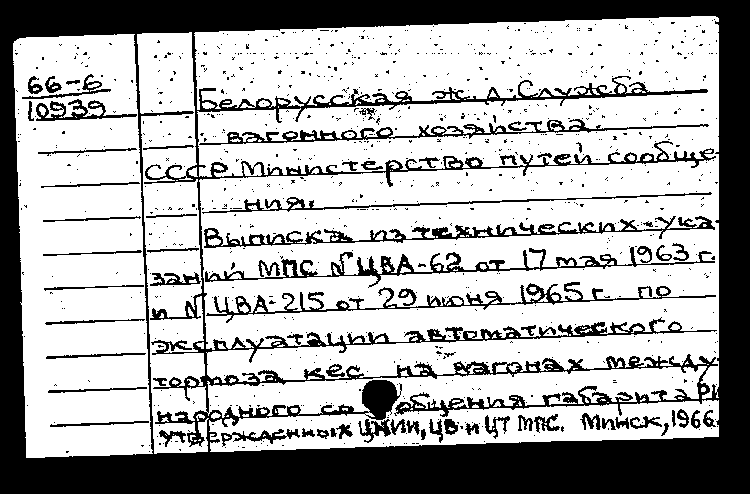 66-6
10939
Белорусская ж.д. Служба
вагонного хозяйства.
СССР. Министерство путей сообще-
ния.
Выписка из технических ука-
заний МПС № ЦВА-62 от 17 мая 1963 г.
и № ЦВА-215 от 29 июня 1965 г. по
эксплуатации автоматического
тормоза кес на вагонах между-
народного сообщения габарита РИЦ
утвержденных ЦНИИ, ЦВ и ЦТ МПС. Минск, 1966.